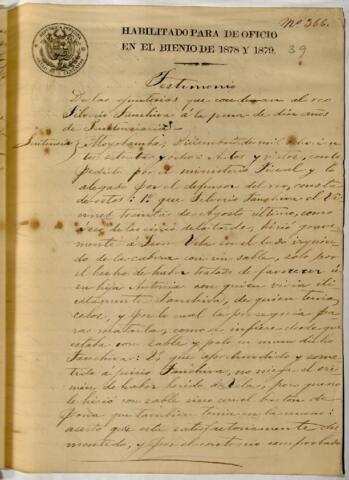 Nº 366.
HABILITADO PARA DE OFICIO
EN EL BIENIO DE 1878 Y 1879.
39
Testimonio
De las ejecutorias que condenan al reo
Silverio Sanchiva á la pena de diez años
de Penitenciaria
Sentencia Moyobamba, Diciembre de mil ocho
setenta y ocho: Autos y vistos, con lo
pedido por el ministerio Fiscal y lo
alegado por el defensor del reo, consta
de estos: 1º que Silverio Sanchiva el Vi-
ernes treinta de Agosto último, como
á las cinco de la tarde, hirió grave-
mente á Juan Vela en el lado izquier-
do de la cabeza con un sable, solo por
el hecho de haber tratado de favorecer á
su hija Antonia con quien vivia ili-
citamente Sanchiva, de quien tenia
celos, y por lo cual la perseguia pa-
ra matarla, como se infiere desde que
estaba con sable y palo en mano dicho
Sanchiva: 2º que aprehendido y some-
tido á juicio Sanchiva, no niega el cri-
men de haber herido á Vela, pero que no
le hirió con sable sino con el baston de
que tambien tenia en la mano:
aserto que está satisfactoriamente des-
mentido, y por el contrario comprobado